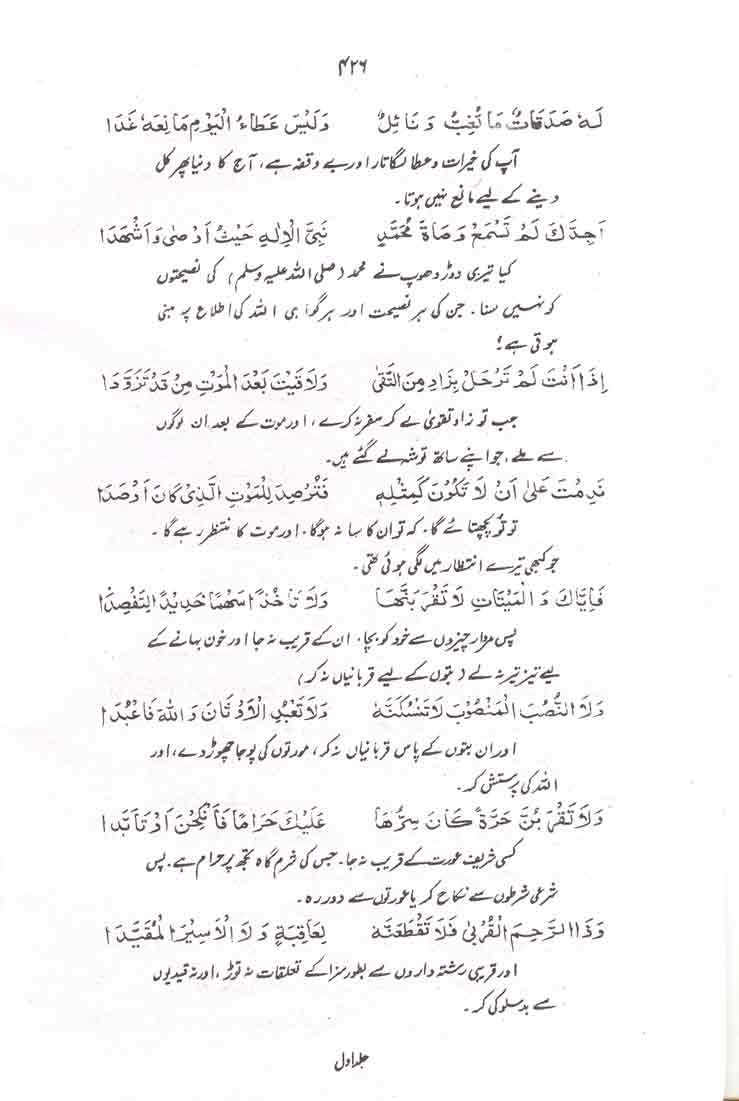 ۴۲۶
لَہٗ صَدَقَاتٌ مَا تُغِبُّ وَنَائِلٌ وَلَیْسَ عَطَاءُ الْیَوْمِ مَانِعَہٗ غَدَا
آپ کی خیرات و عطا لگاتار اور بے وقفہ ہے، آج کا دنیا پھر کل
دینے کے لیے مانع نہیں ہوتا۔
اَجِدَّكَ لَمْ تَسْمَعْ وَصَاۃَ مُحَمَّدٍ نَبِیِّ الْاِلٰہِ حَیْثُ اَوْصٰی وَاَشْھَدَا
کیا تیری دوڑ دھوپ نے محمد (صلی اللہ علیہ وسلم) کی نصیحتوں
کو نہیں سنا۔ جن کی ہر نصیحت اور ہر گواہی اللہ کی اطلاع پر مبنی
ہوتی ہے!
اِذَا اَنْتَ لَمْ تَرْحَلْ بِزَادٍ مِنَ التُّقٰی وَلَاقَیْتَ بَعْدَ الْمَوْتِ مَنْ قَدْ تَزَوَّدَا
جب تو زادِ تقویٰ لے کر سفر نہ کرے، اور موت کے بعد ان لوگوں
سے ملے، جو اپنے ساتھ توشہ لے گئے ہیں۔
نَدِمْتَ عَلٰی اَنْ لَا تَکُوْنَ کَمِثْلِہٖ فَتُرْصِدَ لِلْمَوْتِ الَّذِیْ کَانَ اَرْصَدَا
تو تُو پچھتائے گا۔ کہ تو ان کا سا نہ ہوگا۔ اور موت کا منتظر رہے گا۔
جو کبھی تیرے انتظار میں لگی ہوئی تھی۔
فَاِیَّاكَ وَالْمَیْتَاتِ لَا تَقْرَبَنَّھَا وَلَا تَاْخُذَا سَھْمًا حَدِیْدًا لِتَفْصِدَا
پس مردار چیزوں سے خود کو بچا۔ ان کے قریب نہ جا اور خون بہانے کے
لیے تیز تیر نہ لے (بتوں کے لیے قربانیاں نہ کر)
وَلَا النُّصُبَ الْمَنْصُوْبَ لَا تَنْسُکَنَّہٗ وَلَا تَعْبُدِ الْاَوْثَانَ وَاللہَ فَاعْبُدَا
اور ان بتوں کے پاس قربانیاں نہ کر، مورتوں کی پوجا چھوڑ دے، اور
اللہ کی پرستش کر۔
وَلَا تَقْرَبَنَّ حَرَّۃً کَانَ سِرُّھَا عَلَیْكَ حَرَامًا فَانْکِحَنْ اَوْ تَاَبَّدَا
کسی شریف عورت کے قریب نہ جا۔ جس کی شرم گاہ تجھ پر حرام ہے۔ پس
شرعی شرطوں سے نکاح کر یا عورتوں سے دور رہ۔
وَذَا الرَّحِمِ الْقُرْبٰی فَلَا تَقْطَعَنَّہٗ لِعَاقِبَۃٍ وَلَا الْاَسِیْرَ الْمُقَیَّدَا
اور قریبی رشتہ داروں سے بطور سزا کے تعلقات نہ توڑ، اور نہ قیدیوں
سے بدسلوکی کر۔
جلد اول